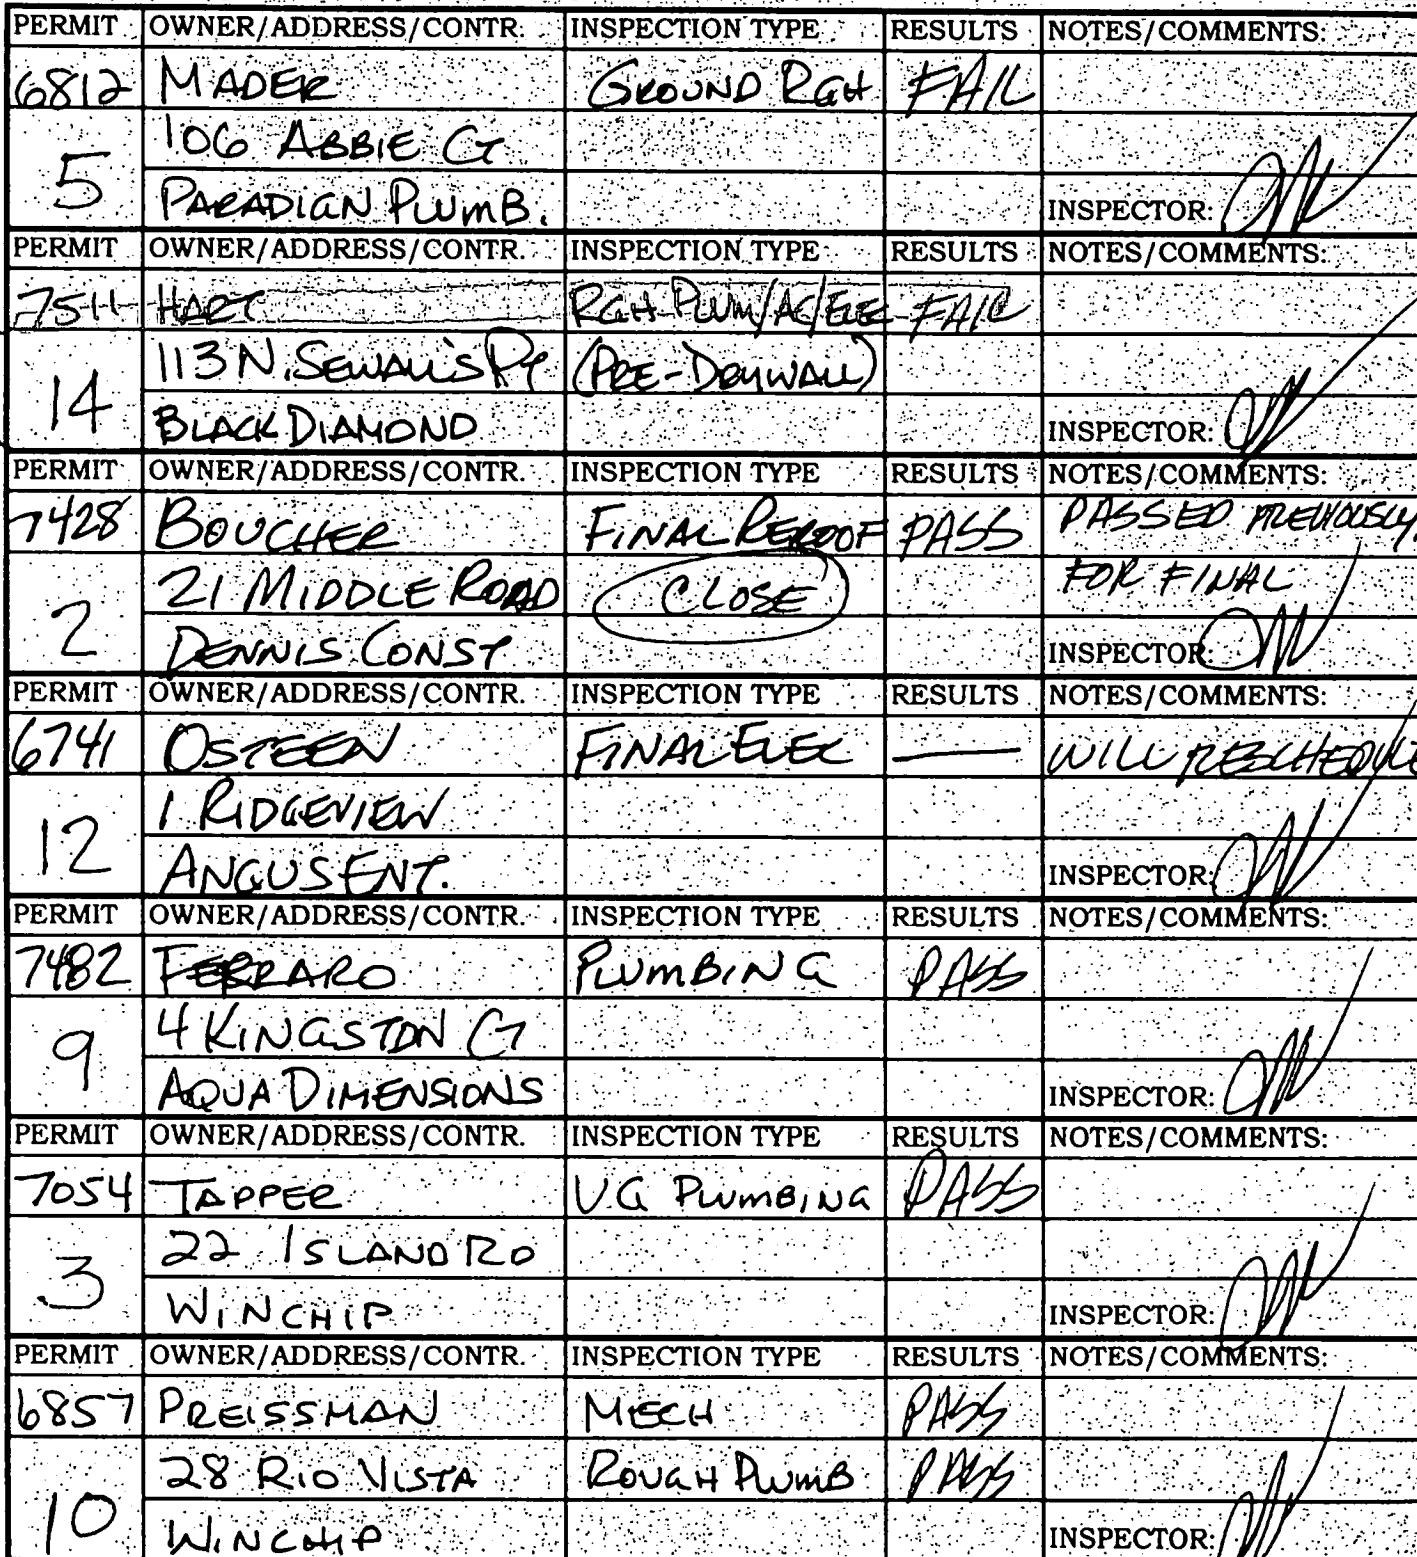 PERMIT OWNER/ADDRESS/CONTR. INSPECTION TYPE RESULTS NOTES/COMMENTS:
6812 MADER GROUND RGH FAIL
5 106 ABBIE CT
PARADIGN PLUMB. INSPECTOR:
PERMIT OWNER/ADDRESS/CONTR. INSPECTION TYPE RESULTS NOTES/COMMENTS:
7511 HART RGH PLUM/AC/ELE FAIL
14 113 N. SEWALL'S PT (PRE-DRYWALL)
BLACK DIAMOND INSPECTOR:
PERMIT OWNER/ADDRESS/CONTR. INSPECTION TYPE RESULTS NOTES/COMMENTS:
7428 BOUCHER FINAL REROOF PASS PASSED PREVIOUSLY
2 21 MIDDLE ROAD CLOSE FOR FINAL
DENNIS CONST INSPECTOR:
PERMIT OWNER/ADDRESS/CONTR. INSPECTION TYPE RESULTS NOTES/COMMENTS:
6741 OSTEEN FINAL ELEC — WILL RESCHEDULE
12 1 RIDGEVIEW
ANGUS ENT. INSPECTOR:
PERMIT OWNER/ADDRESS/CONTR. INSPECTION TYPE RESULTS NOTES/COMMENTS:
7482 FERRARO PLUMBING PASS
9 4 KINGSTON CT
AQUA DIMENSIONS INSPECTOR:
PERMIT OWNER/ADDRESS/CONTR. INSPECTION TYPE RESULTS NOTES/COMMENTS:
7054 TAPPER U.G PLUMBING PASS
3 22 ISLAND RD
WINCHIP INSPECTOR:
PERMIT OWNER/ADDRESS/CONTR. INSPECTION TYPE RESULTS NOTES/COMMENTS:
6857 PREISSMAN MECH PASS
10 28 RIO VISTA ROUGH PLUMB PASS
WINCHIP INSPECTOR: